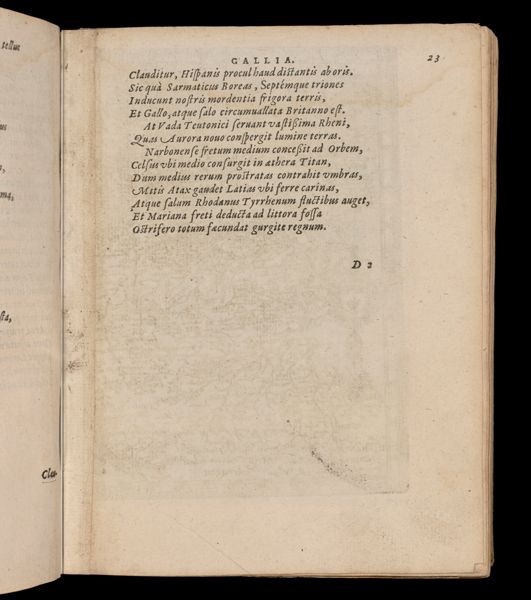 tellus
us
ma,
sta,
Clau-
GALLIA. 23
Clauditur, Hispanis procul haud distantis ab oris.
Sic quà Sarmaticus Boreas, Septémque triones
Inducunt nostris mordentia frigora terris,
Et Gallo, atque salo circumuallata Britanno est.
At Vada Teutonici seruant vastissima Rheni,
Quas Aurora nouo conspergit lumine terras.
Narbonense fretum medium concessit ad Orbem,
Celsus vbi medio consurgit in æthera Titan,
Dum medius rerum prostratas contrahit vmbras,
Mitis Atax gaudet Latias vbi ferre carinas,
Atque salum Rhodanus Tyrrhenum fluctibus auget,
Et Mariana freti deducta ad littora fossa
Ostrifero totum fæcundat gurgite regnum.
D 2